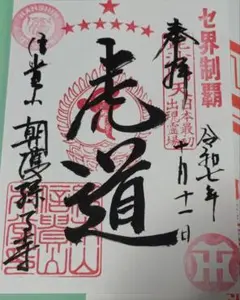 セ界制覇
奉拝
日本最初
出現霊場
令和七年
十月十一日
虎道
信貴山
朝護孫子寺
HANSHIN